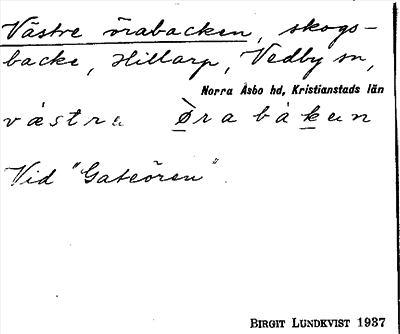 Västre örabacken, skogs-
backe, Hillarp, Vedby sn,
Norra Åsbo hd, Kristianstads län
västra Òrabàken
Vid "Gateören".
BIRGIT LUNDKVIST 1937